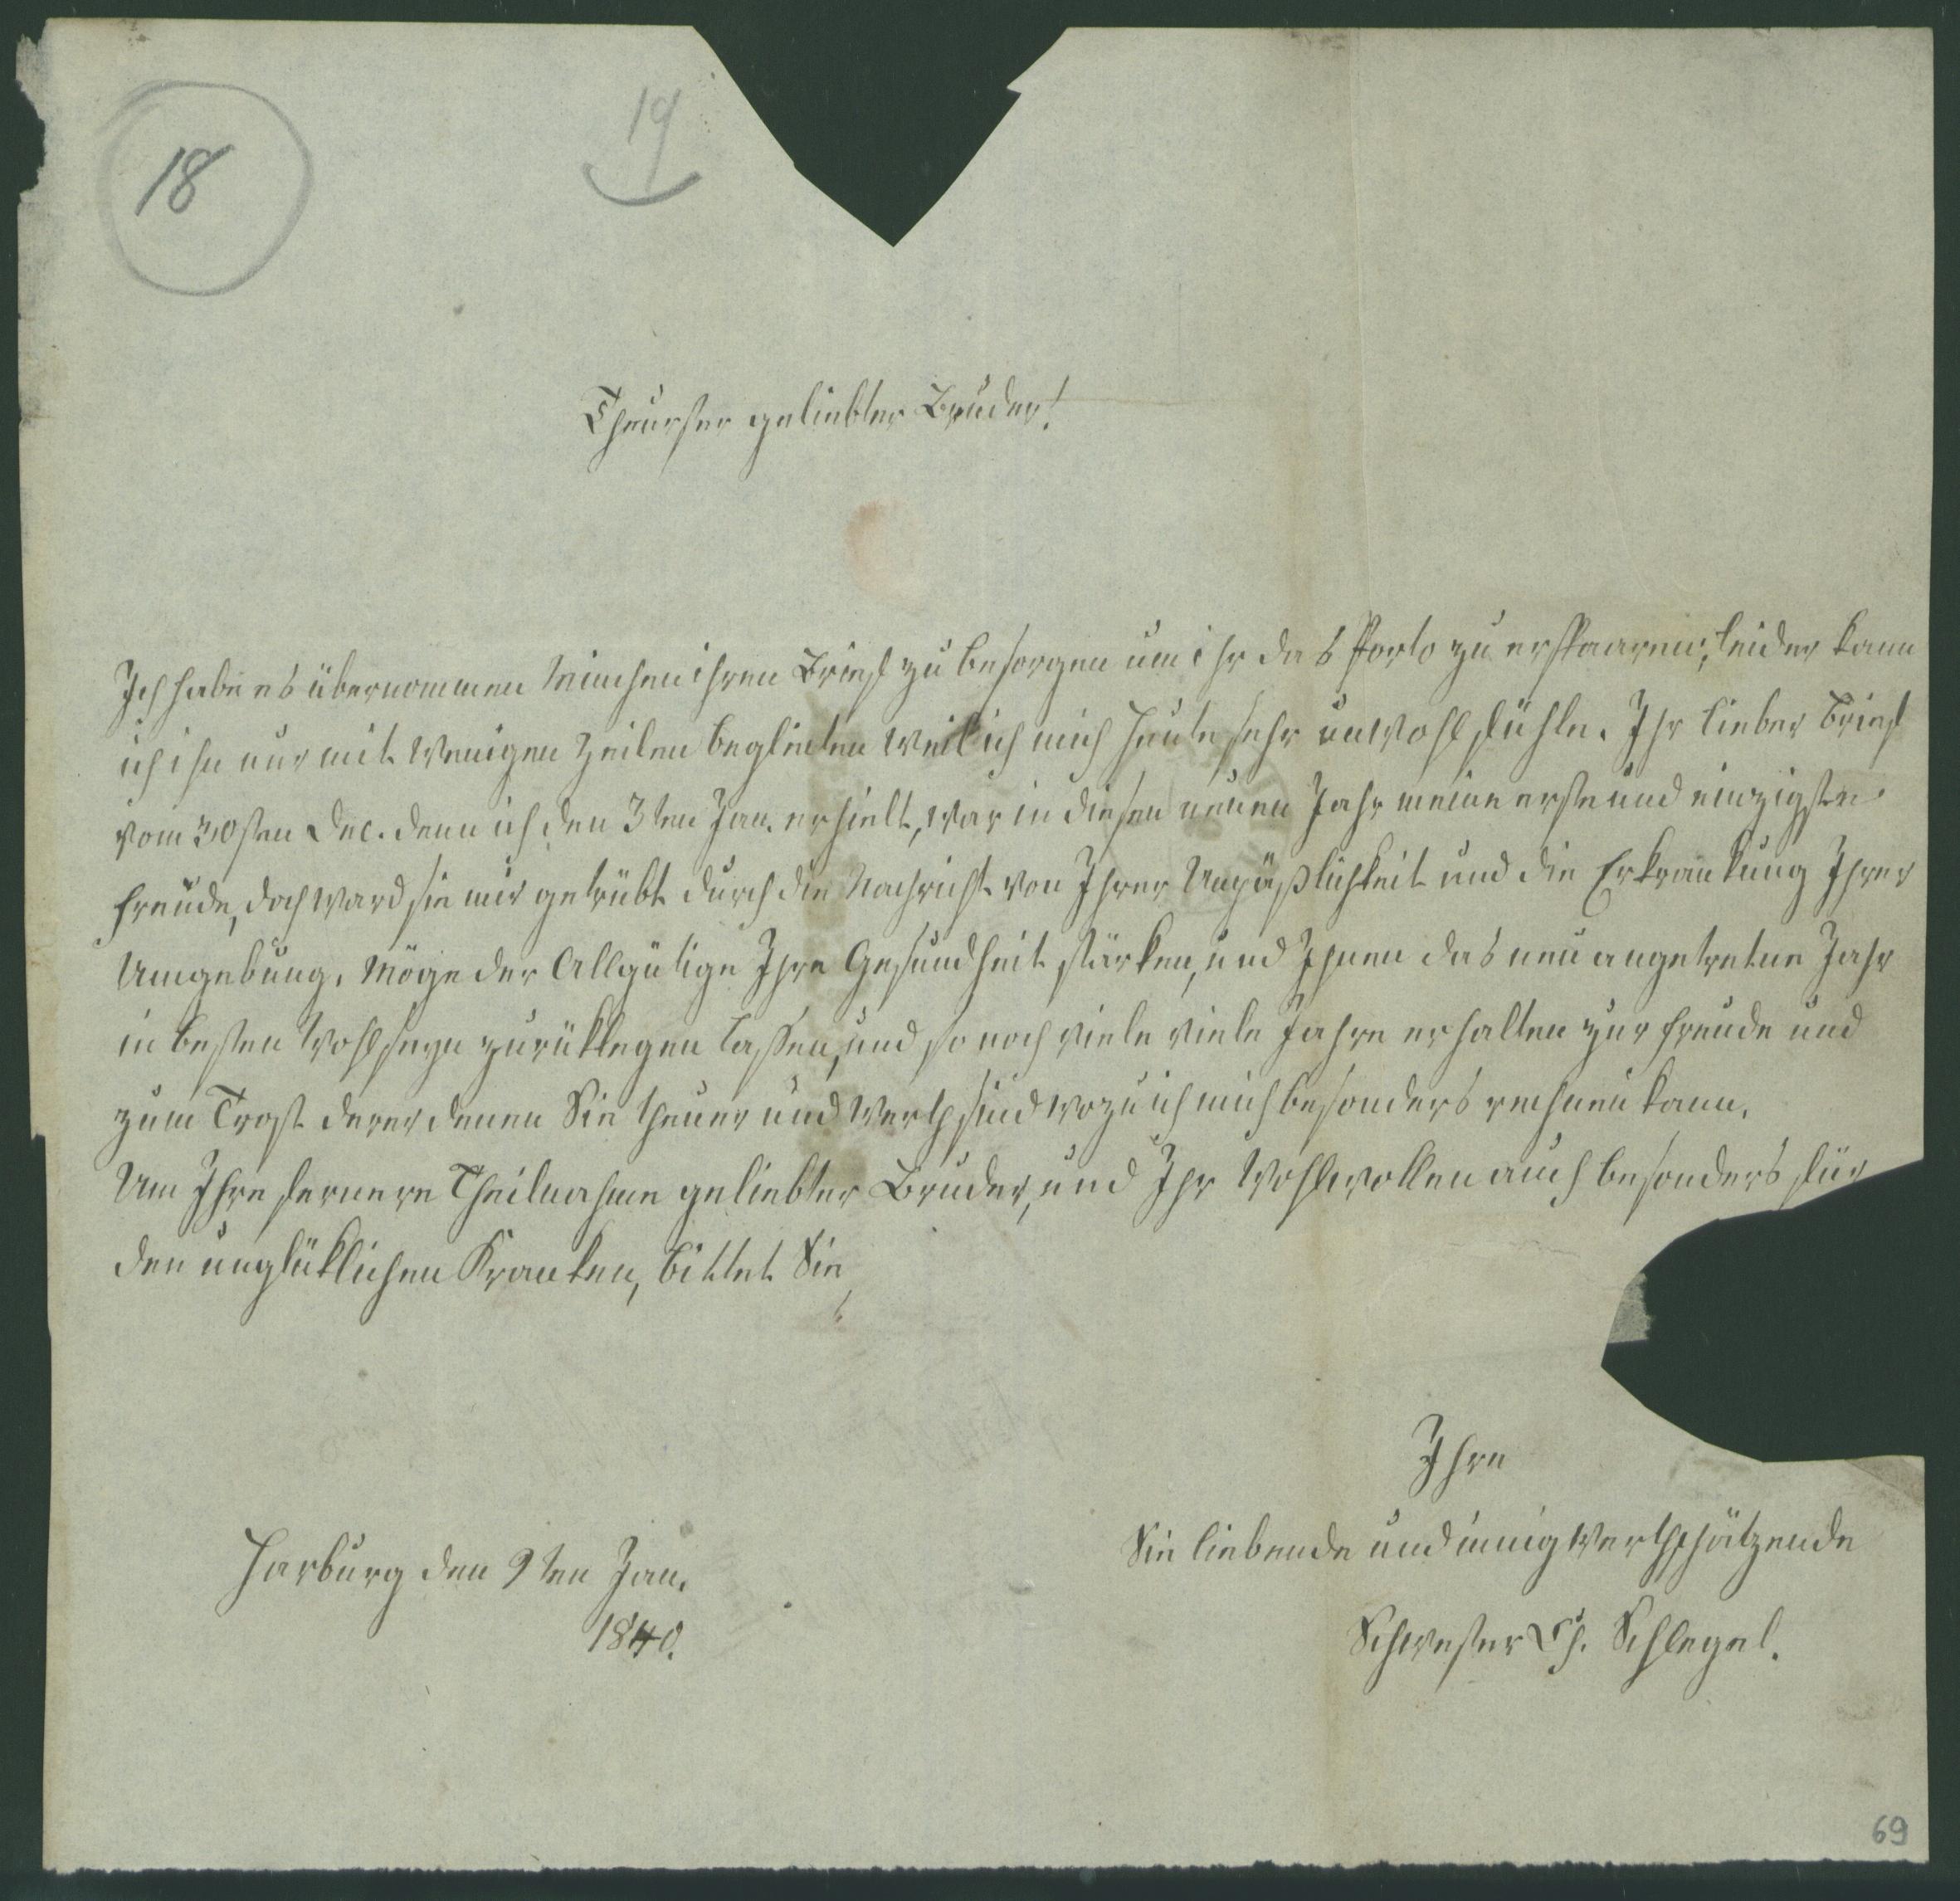 18
19
Theurster geliebter Bruder!
Ich habe es übernommen Minchen ihren Brief zu besorgen um ihr das Porto zu erspaaren, leider kann
ich ihn nur mit wenigen Zeilen begleiten weil ich mich heute sehr unwohl fühle. Ihr lieber Brief
vom 30sten Dec. denn ich den 3ten Jan. erhielt, war in diesen neuen Jahr meine erste und einzigste
Freude, doch ward sie mir getrübt durch die Nachricht von Ihrer Unpäßlichkeit und die Erkrankung Ihrer
Umgebung. Möge der Allgütige Ihre Gesundheit stärken, und Ihnen das neu angetretne Jahr
in besten Wohlseyn zurüklegen lassen, und so noch viele viele Jahre erhalten zur Freude und
zum Trost derer denen Sie theuer und werth sind wozu ich mich besonders rechnen kann.
Um Ihre fernere Theilnahme geliebter Bruder, und Ihr Wohlwollen auch besonders für
den unglüklichen Kranken, bittet Sie
Ihre
Sie liebende und innig werthschätzende
Harburg den 9ten Jan.
1840.
Schwester Ch. Schlegel.
69